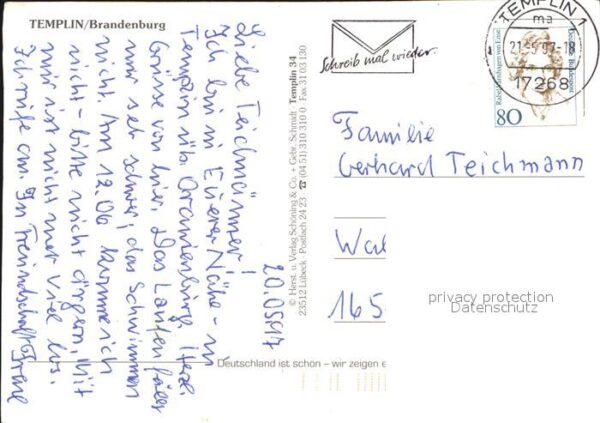 TEMPLIN/Brandenburg
20.05.97
Liebe Teichmänner!
Ich bin in Eurer Nähe - in
Templin üb. Oranienburg. Herzl.
Grüsse von hier. Das Laufen fällt
mir sehr schwer; das Schwimmen
nicht. Am 12.06 komme ich
nicht - bitte nicht ärgern. Mit
mir ist nicht mehr viel los.
Ich rufe an. In Freundschaft
© Herst. u. Verlag Schöning & Co. + Gebr. Schmidt Templin 34
23512 Lübeck · Postfach 24 23 ☎ (04 51) 310 310 0 · Fax 31 03 130
Deutschland ist schön – wir zeigen e
Schreib mal wieder.
TEMPLIN 1
ma
17268
Rahel Varnhagen von Ense
Deutsche Bundespost
80
Familie
Gerhard Teichmann
Wal
165
privacy protection
Datenschutz